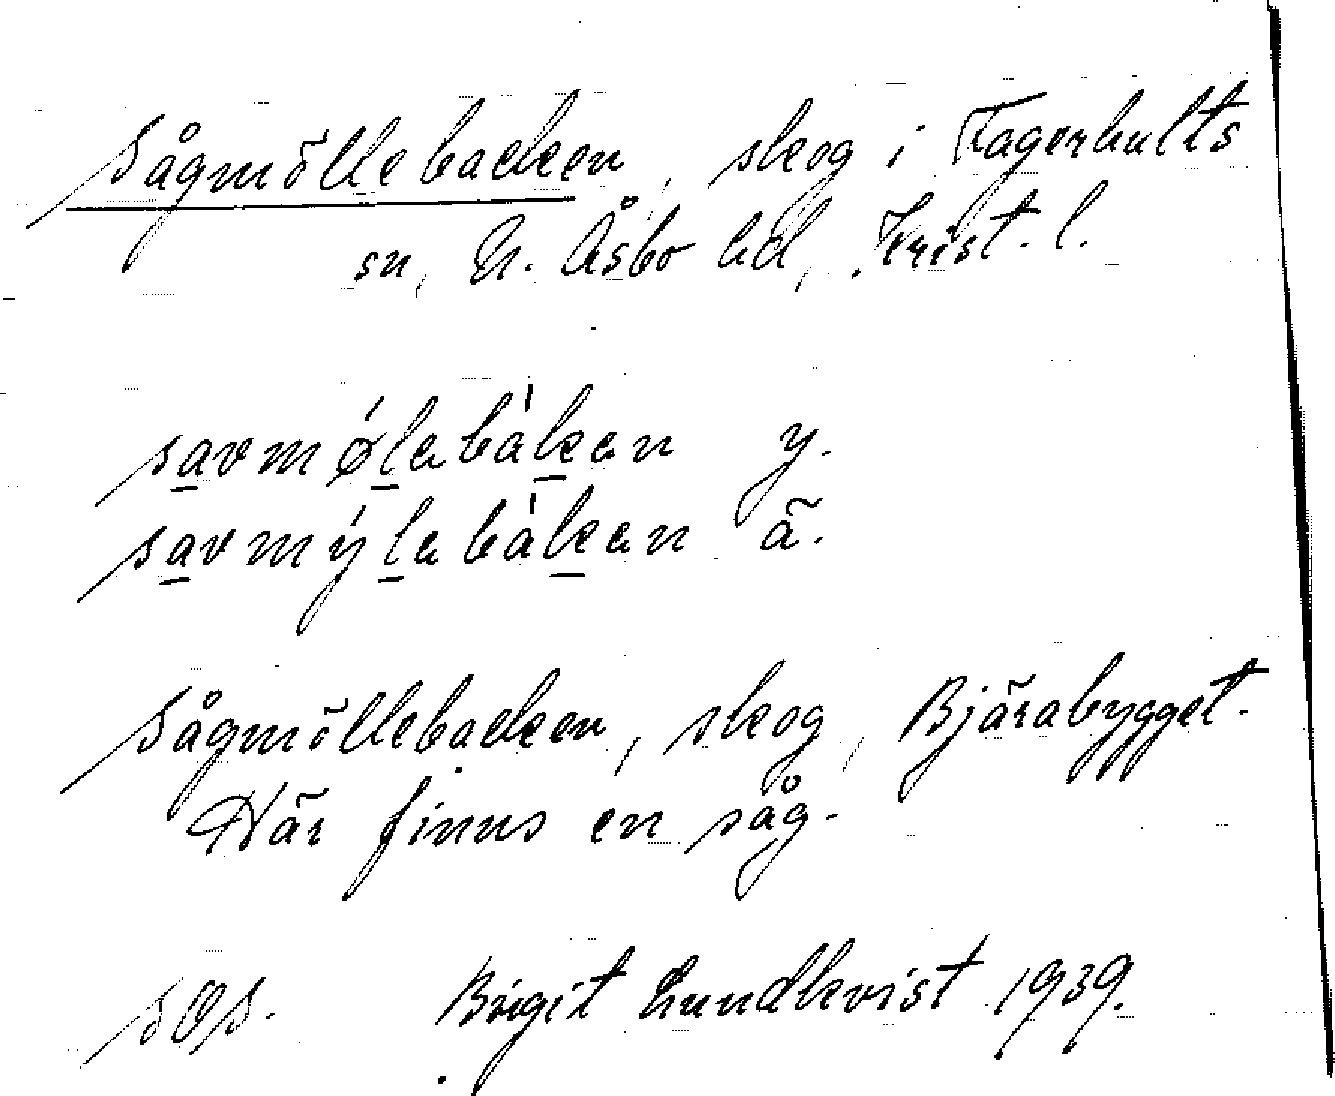 Sågmöllebacken, skog i Fagerhults
sn, N. Åsbo hd, Krist. l.
savmǿlebàkan y.
savmýlebàkan ä.
Sågmöllebacken, skog, Bjärabygget.
Här finns en såg.
SOS. Birgit Lundkvist 1939.